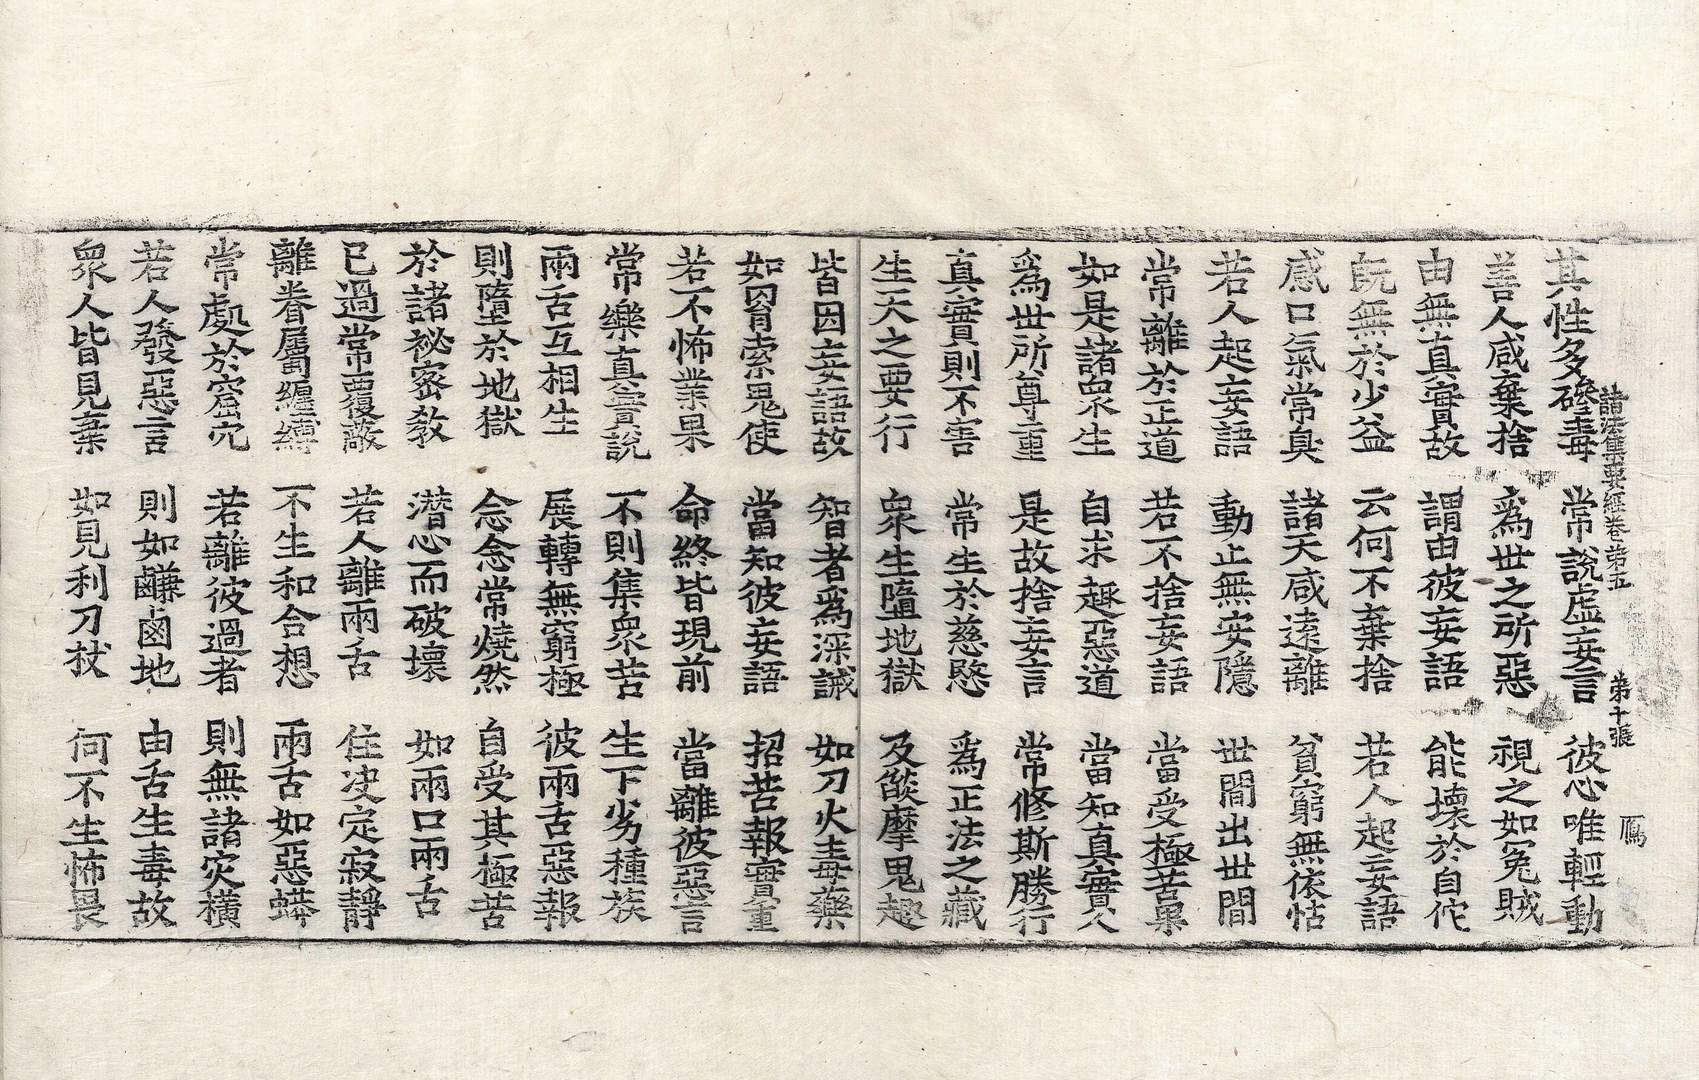 諸法集要經卷第五 第十張 鴈
其性多磣毒 常說虛妄言 彼心唯輕動
善人咸棄捨 爲世之所惡 視之如冤賊
由無真實故 謂由彼妄語 能壞於自佗
旣無於少益 云何不棄捨 若人起妄語
感口氣常臭 諸天咸遠離 貧窮無依怙
若人起妄語 動止無安隱 世間出世間
常離於正道 若不捨妄語 當受極苦果
如是諸衆生 自求趣惡道 當知真實人
爲世所尊重 是故捨妄言 常修斯勝行
真實則不害 常生於慈愍 爲正法之藏
生天之要行 衆生墮地獄 及燄摩鬼趣
皆因妄語故 智者爲深誡 如刀火毒藥
如罥索鬼使 當知彼妄語 招苦報實重
若不怖業果 命終皆現前 當離彼惡言
常樂真實說 不則集衆苦 生下劣種族
兩舌互相生 展轉無窮極 彼兩舌惡報
則墮於地獄 念念常燒然 自受其極苦
於諸祕密敎 潛心而破壞 如兩口兩舌
已過常覆蔽 若人離兩舌 住決定寂靜
離眷屬纏縛 不生和合想 兩舌如惡蟒
常處於窟穴 若離彼過者 則無諸災橫
若人發惡言 則如鹻鹵地 由舌生毒故
衆人皆見棄 如見利刀杖 何不生怖畏